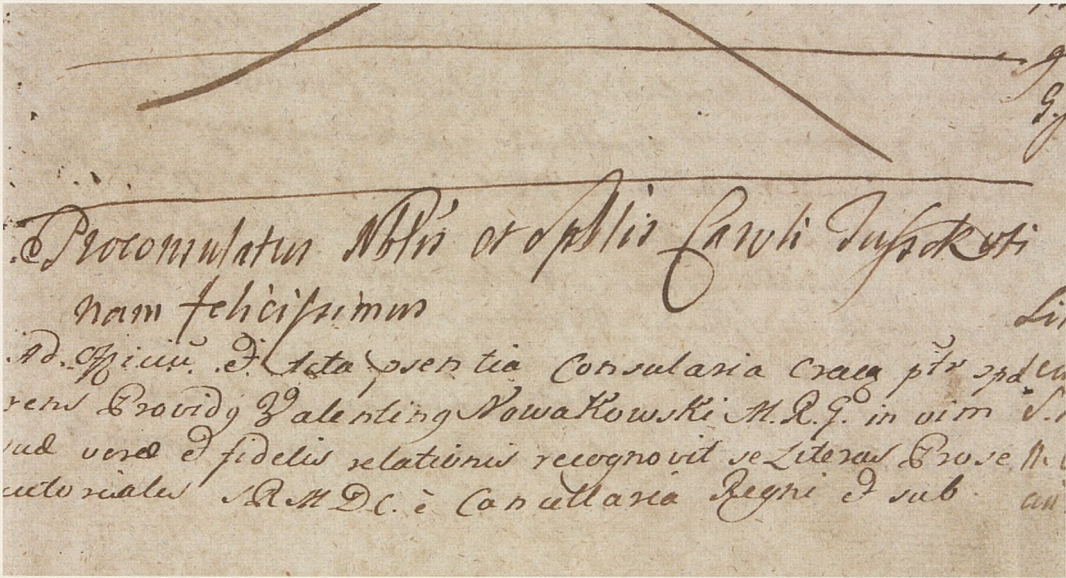 Proconsulatus Nblis et Spblis Caroli
nam felicissimus
Ad Officiũ et Acta psentia Consularia Crac̃ ptr
rens Providꝯ Valentinꝯ Nowakowski M.R.G. in vim
suæ veræ et fidelis relationis recognovit se Literas Prose
cutoriales S R M D C. è Cancellaria Regni et sub